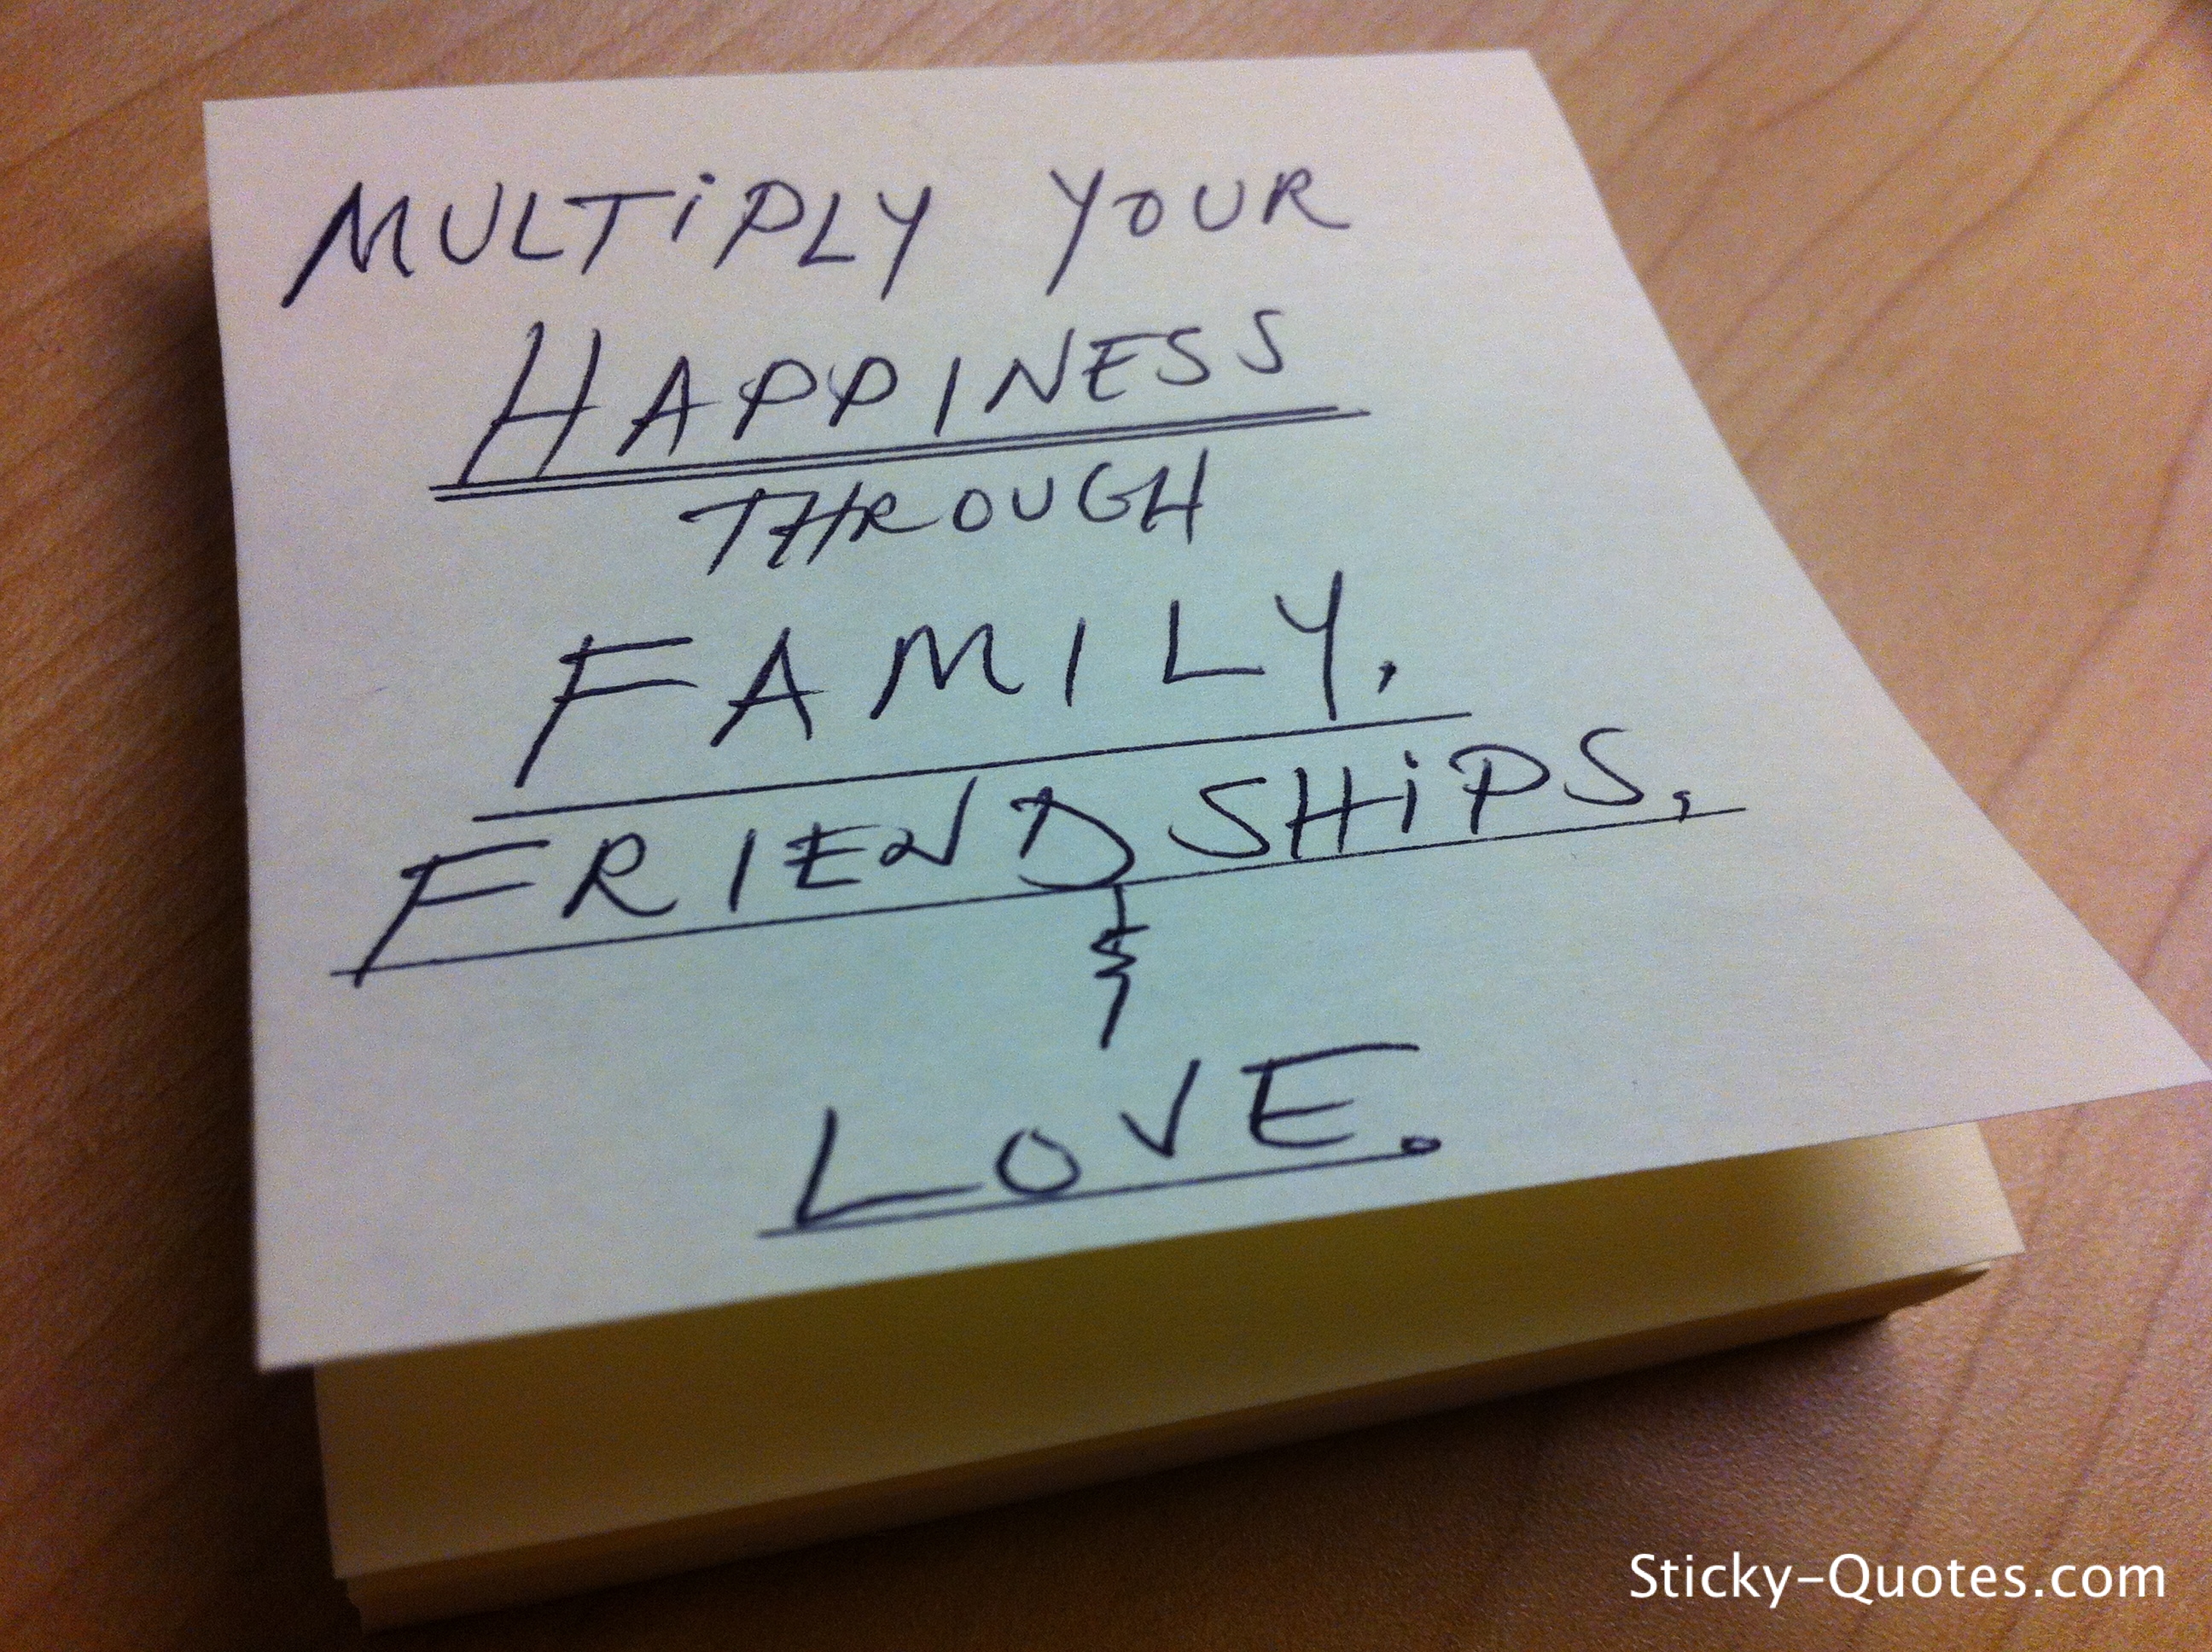 MULTiPLY YOUR
HAPPINESS
THROUGH
FAMILY,
FRIENDSHiPS,
&
LOVE.
Sticky-Quotes.com